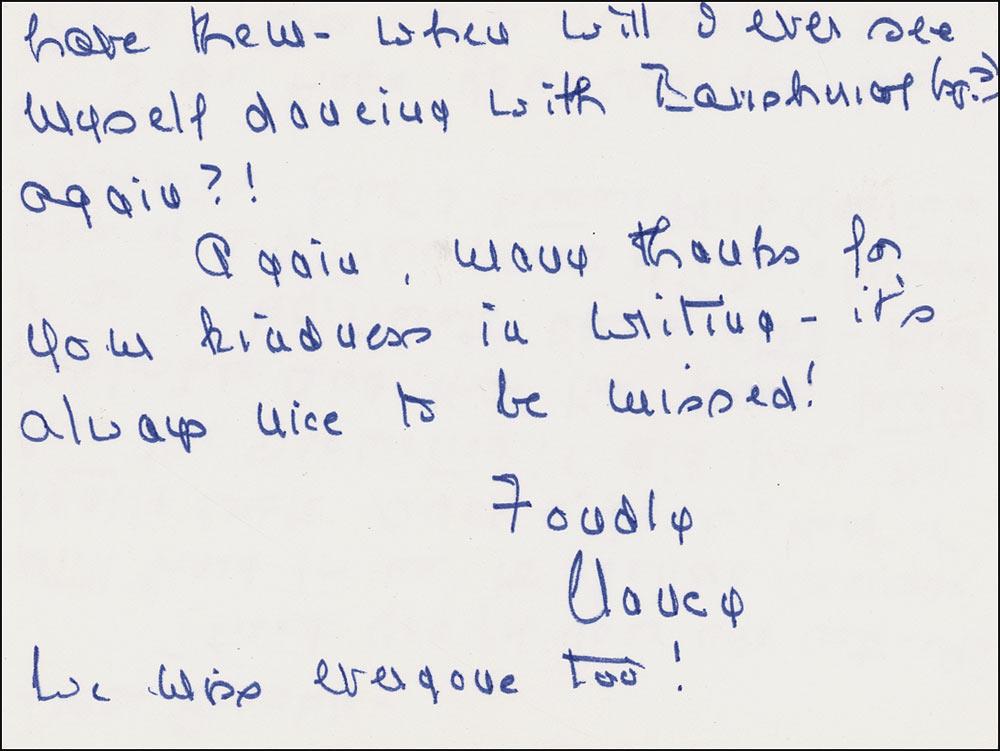 have them - when will I ever see
myself dancing with (sp.?)
again?!
Again, many thanks for
your kindness in writing - it's
always nice to be missed!
Fondly
Nancy
We miss everyone too!